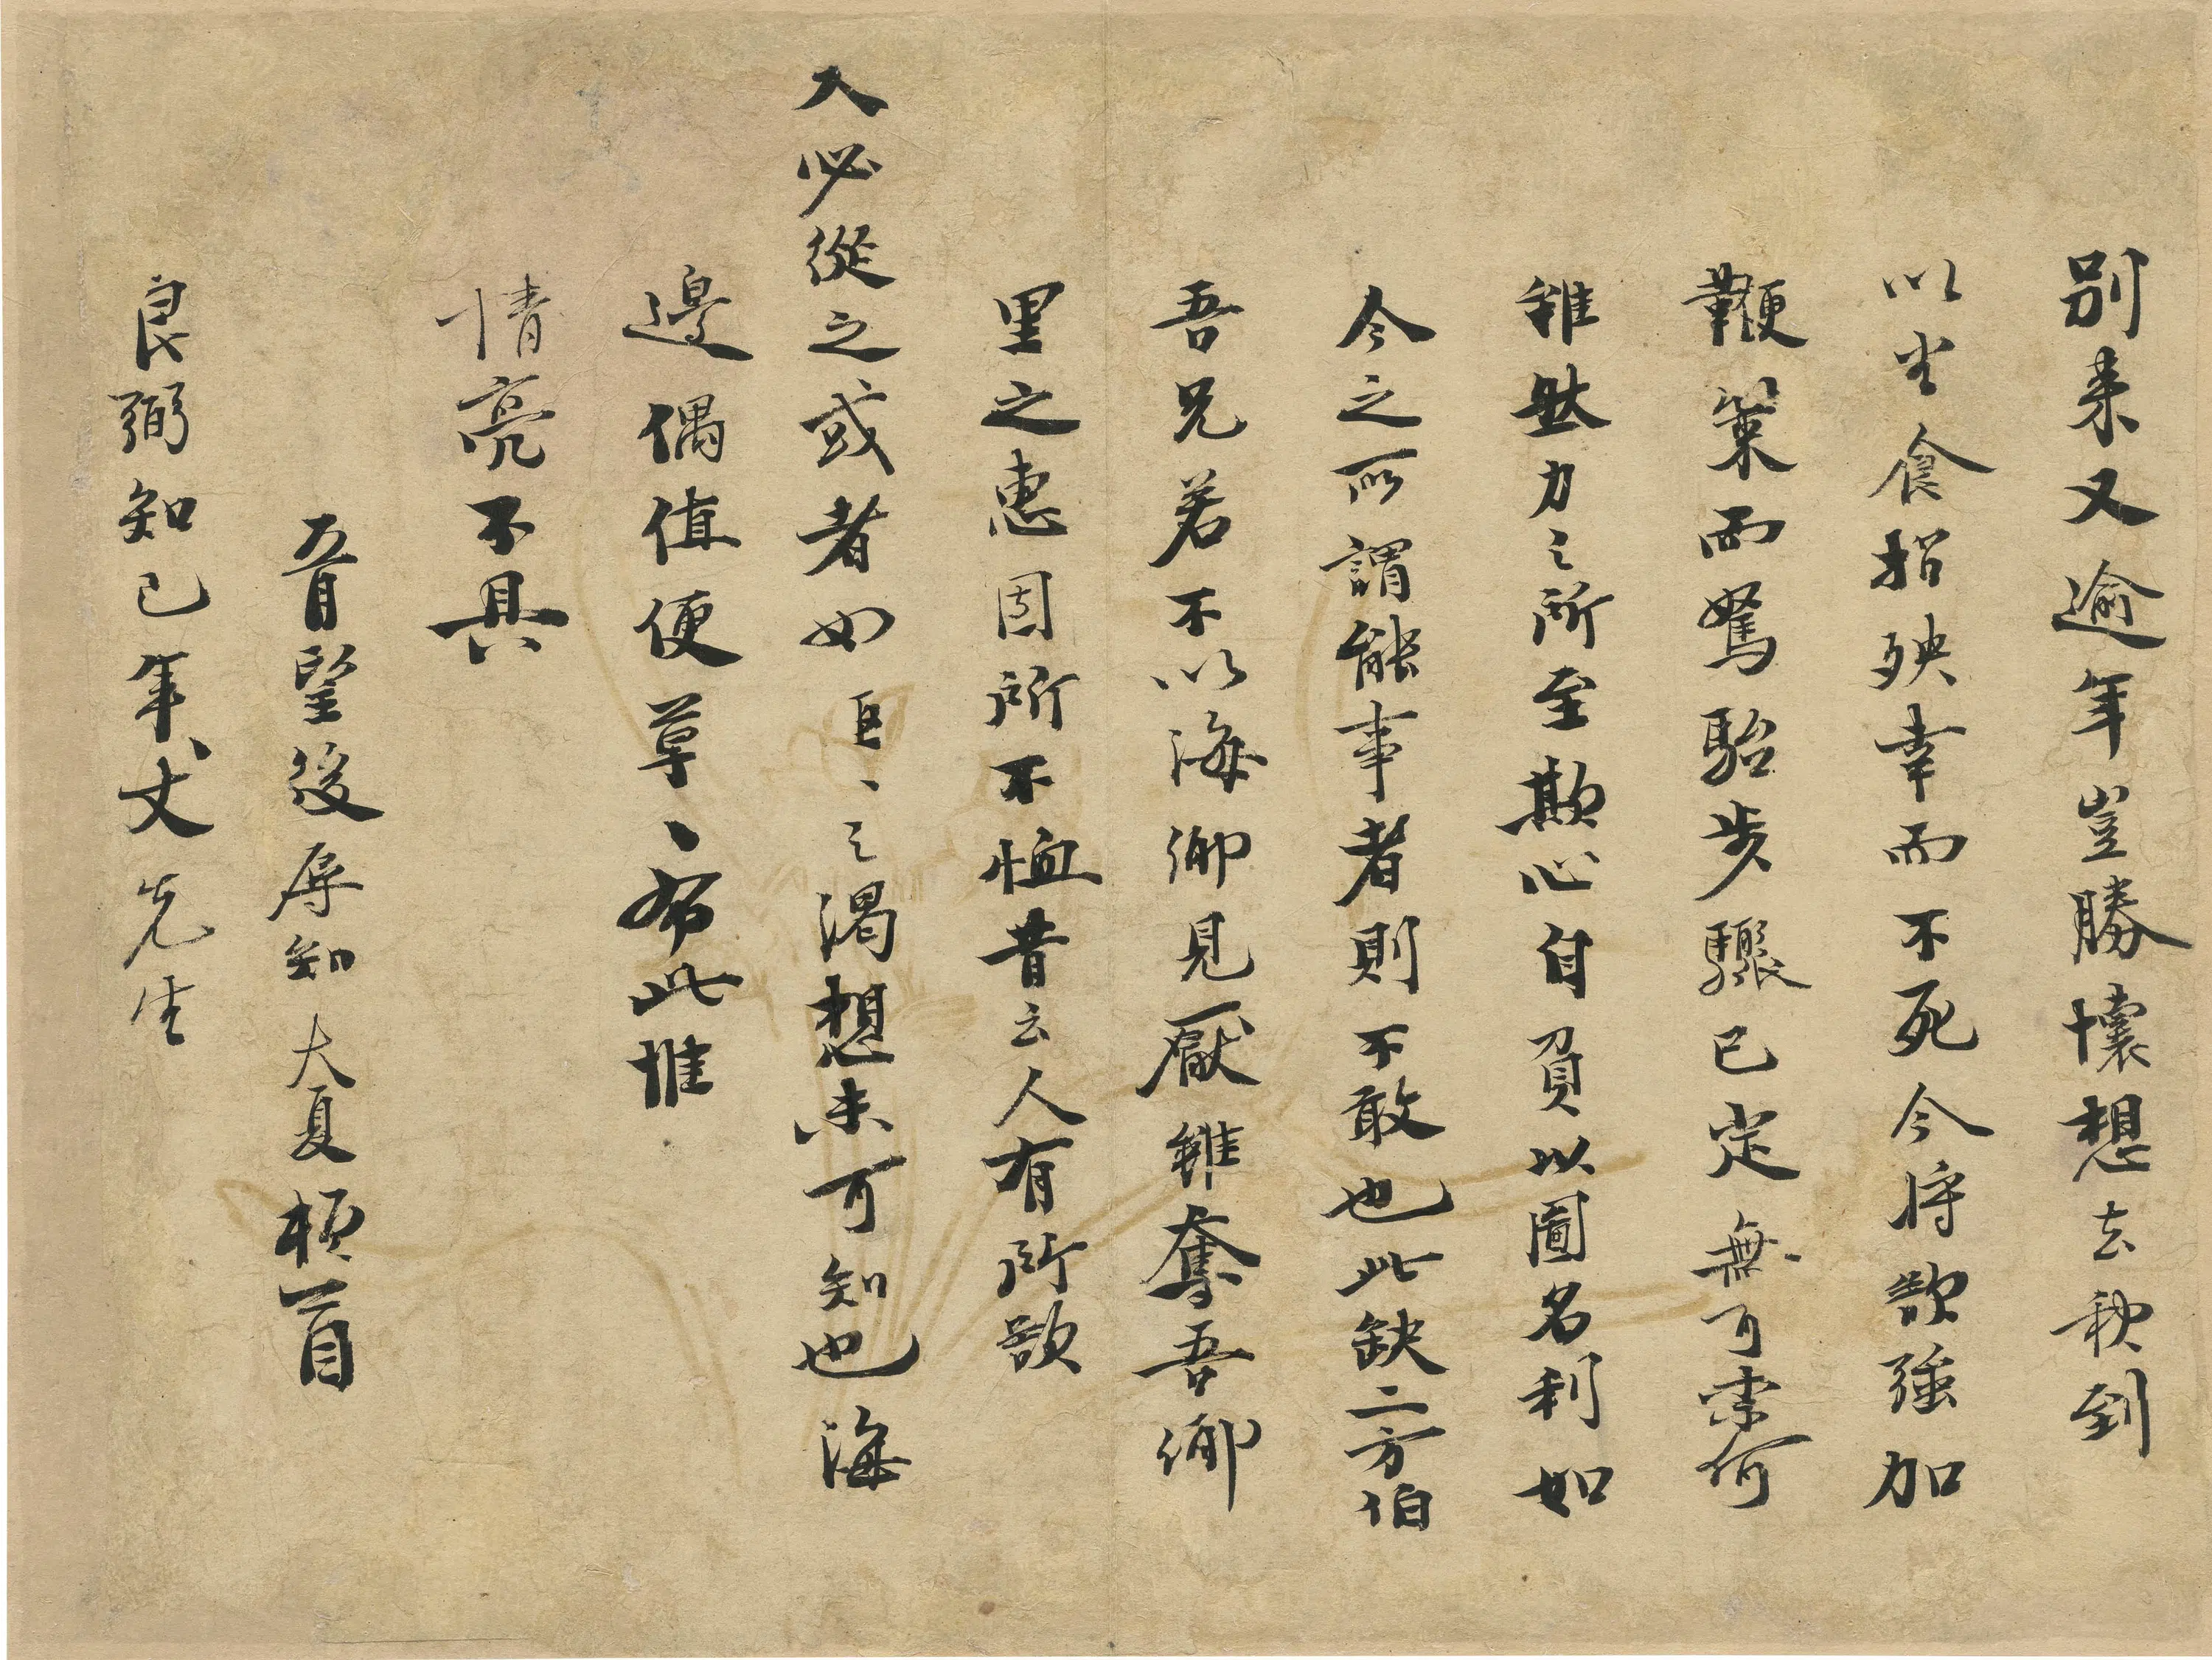 別来又逾年豈勝懷想去秋到
以坐食招殃幸而不死今将欲強加
鞭策而駑駘步驟已定無可柰何
雖然力之所至欺心自負以圖名利如
今之所謂能事者則不敢也此缺二方伯
吾兄若不以海鄉見厭雖奪吾鄉
里之惠固所不恤昔云人有所欲
天必從之或者如區〻之渴想未可知也海
邊偶值便草〻布此惟
情亮不具
五月望後辱知大夏頓首
良弼知己年丈先生